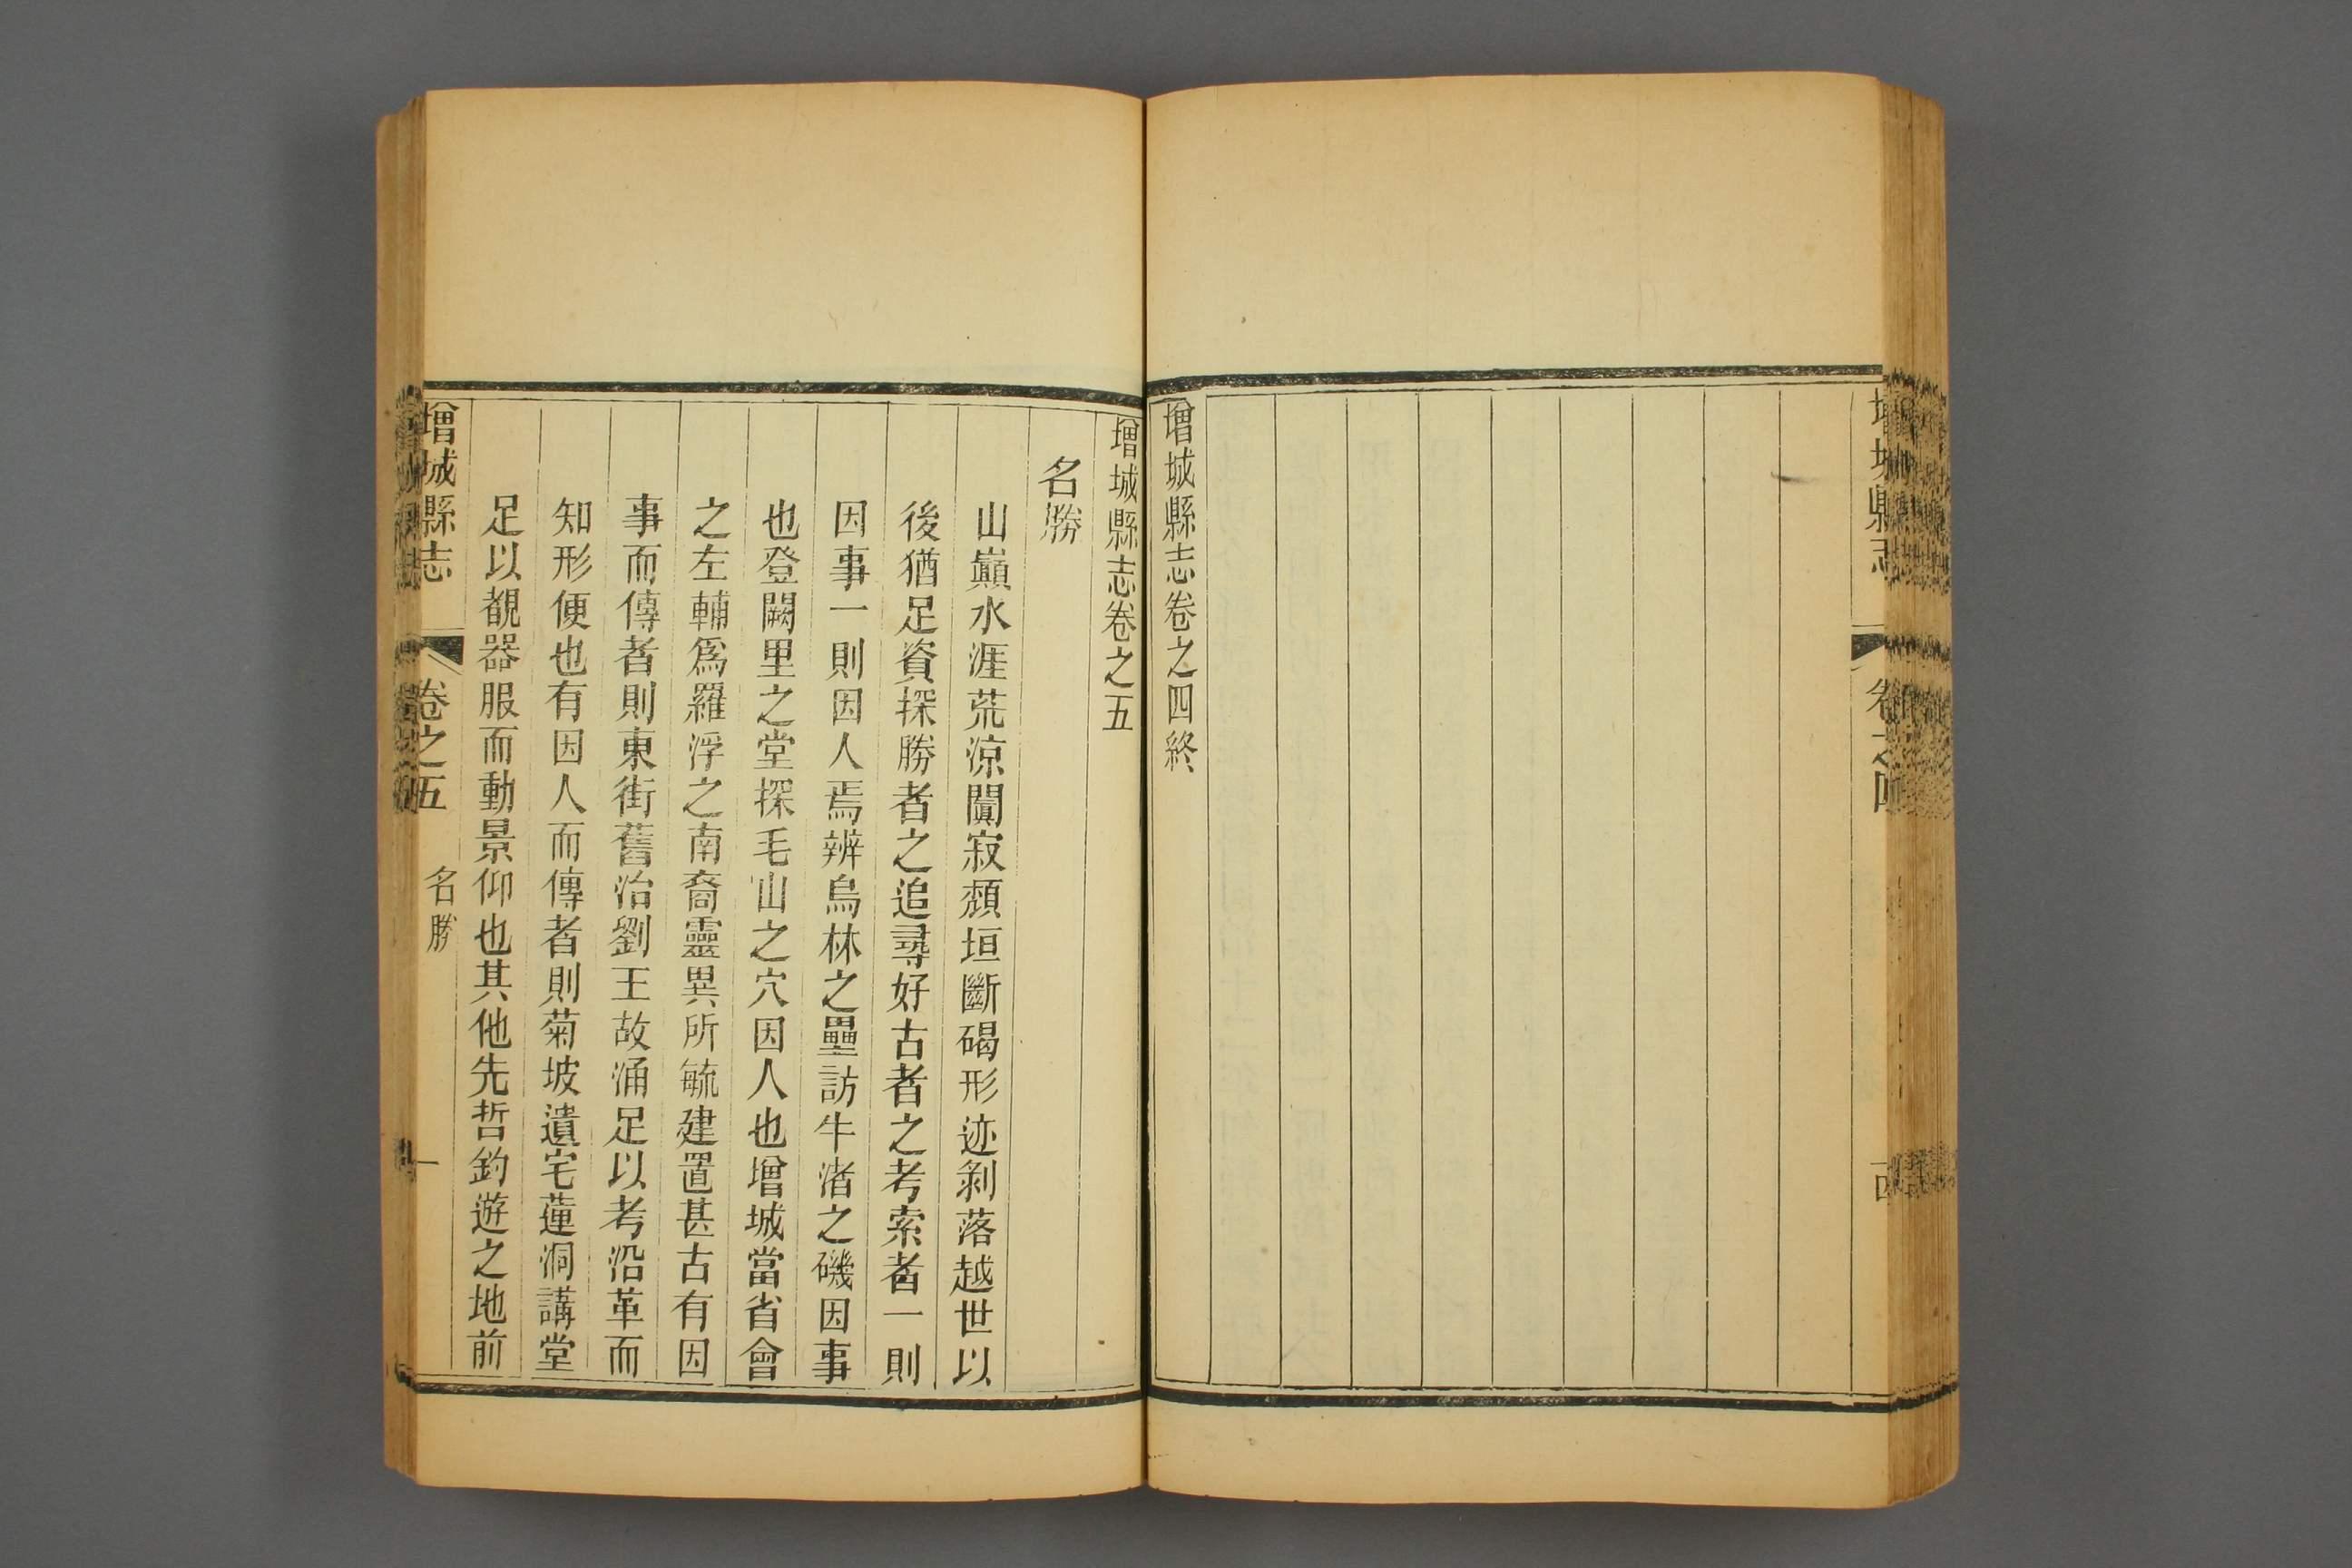 增城縣志
卷之四
增城縣志卷之四終
增城縣志卷之五
名勝
山巓水涯荒涼闃寂頽垣斷碣形迹剝落越世以
後猶足資探勝者之追尋好古者之考索者一則
因事一則因人焉辨烏林之壘訪牛渚之磯因事
也登闕里之堂探毛山之穴因人也增城當省會
之左輔爲羅浮之南裔靈異所毓建置甚古有因
事而傳者則東街舊治劉王故涌足以考沿革而
知形便也有因人而傳者則菊坡遺宅蓮洞講堂
足以覩器服而動景仰也其他先哲釣遊之地前
增城縣志
卷之五
名勝
一